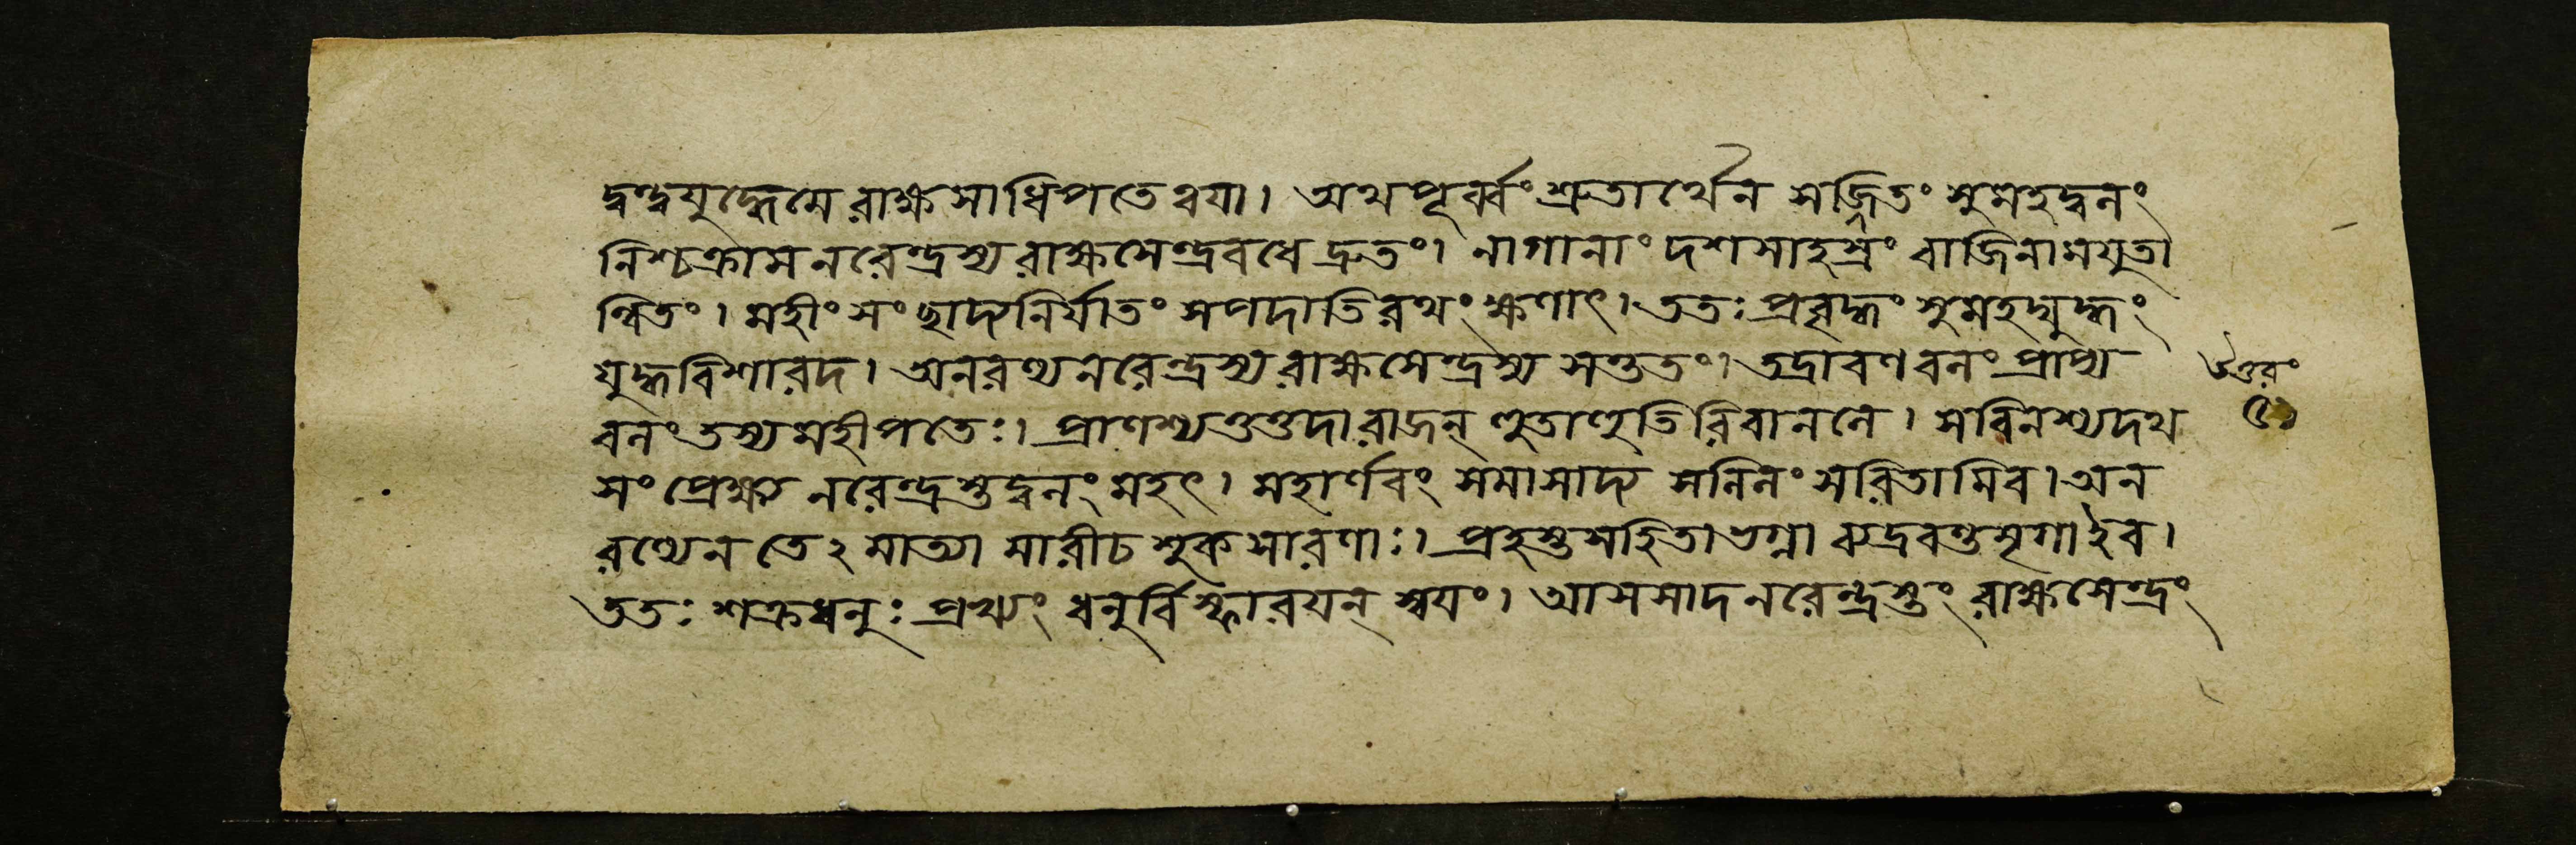 দ্বন্দ্বযুদ্ধেমে রাক্ষসাধিপতে ত্বয়া। অথ পূর্ব্বং শ্রুতার্থেন সজ্জিতং সুমহদ্বলং
নিশ্চক্রাম নরেন্দ্রস্য রাক্ষসেন্দ্রবধে দ্রুতং। নাগানাং দশসাহস্রং বাজিনামযুতা
ন্বিতং। মহীং সংছাদ্য নির্যাতং সপদাতিরথং ক্ষণাৎ। ততঃ প্রবৃদ্ধং সুমহদ্যুদ্ধং
যুদ্ধবিশারদ। অনরণ্য নরেন্দ্রস্য রাক্ষসেন্দ্রস্য সত্তুতং। তদ্রাবণবলং প্রাপ্য
বলং তস্য মহীপতেঃ। প্রাণশ্যত্তুদা রাজন্ হুতাহুতিরিবানলে। স বিনশ্যদথ
সংপ্রেক্ষ্য নরেন্দ্রস্তদ্বলং মহৎ। মহার্ণবং সমাসাদ্য সলিলং সরিতামিব। অন
রণ্যেন তেঽমাত্যা মারীচশুকসারণাঃ। প্রহস্তসহিতা ভগ্না ব্যদ্রবন্ত মৃগা ইব।
ততঃ শক্রধনুঃ প্রখ্যং ধনুর্বিস্ফারয়ন্ স্বয়ং। আসসাদ নরেন্দ্রস্তং রাক্ষসেন্দ্রং
উত্তরং